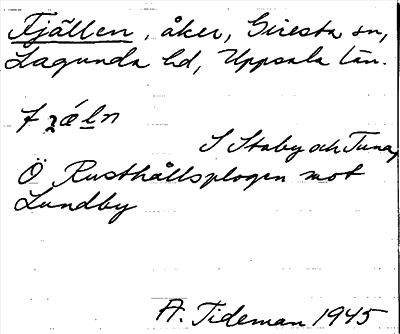 Fjällen, åker, Giresta sn,
Lagunda hd, Uppsala län.
S Staby och Tuna,
Ö Rusthållsplogen mot
Lundby
A. Tideman 1945